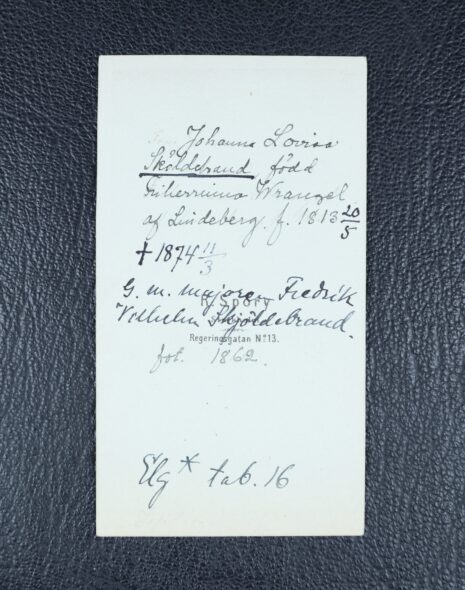 Johanna Lovisa
Sköldebrand, född
Friherrinna Wrangel
af Lindeberg. f. 1813 20/5
† 1874 11/3
G. m. majoren Fredrik
Vilhelm Skjöldebrand.
R. Spory
Regeringsgatan No 13.
fot. 1862.
Elg * tab. 16